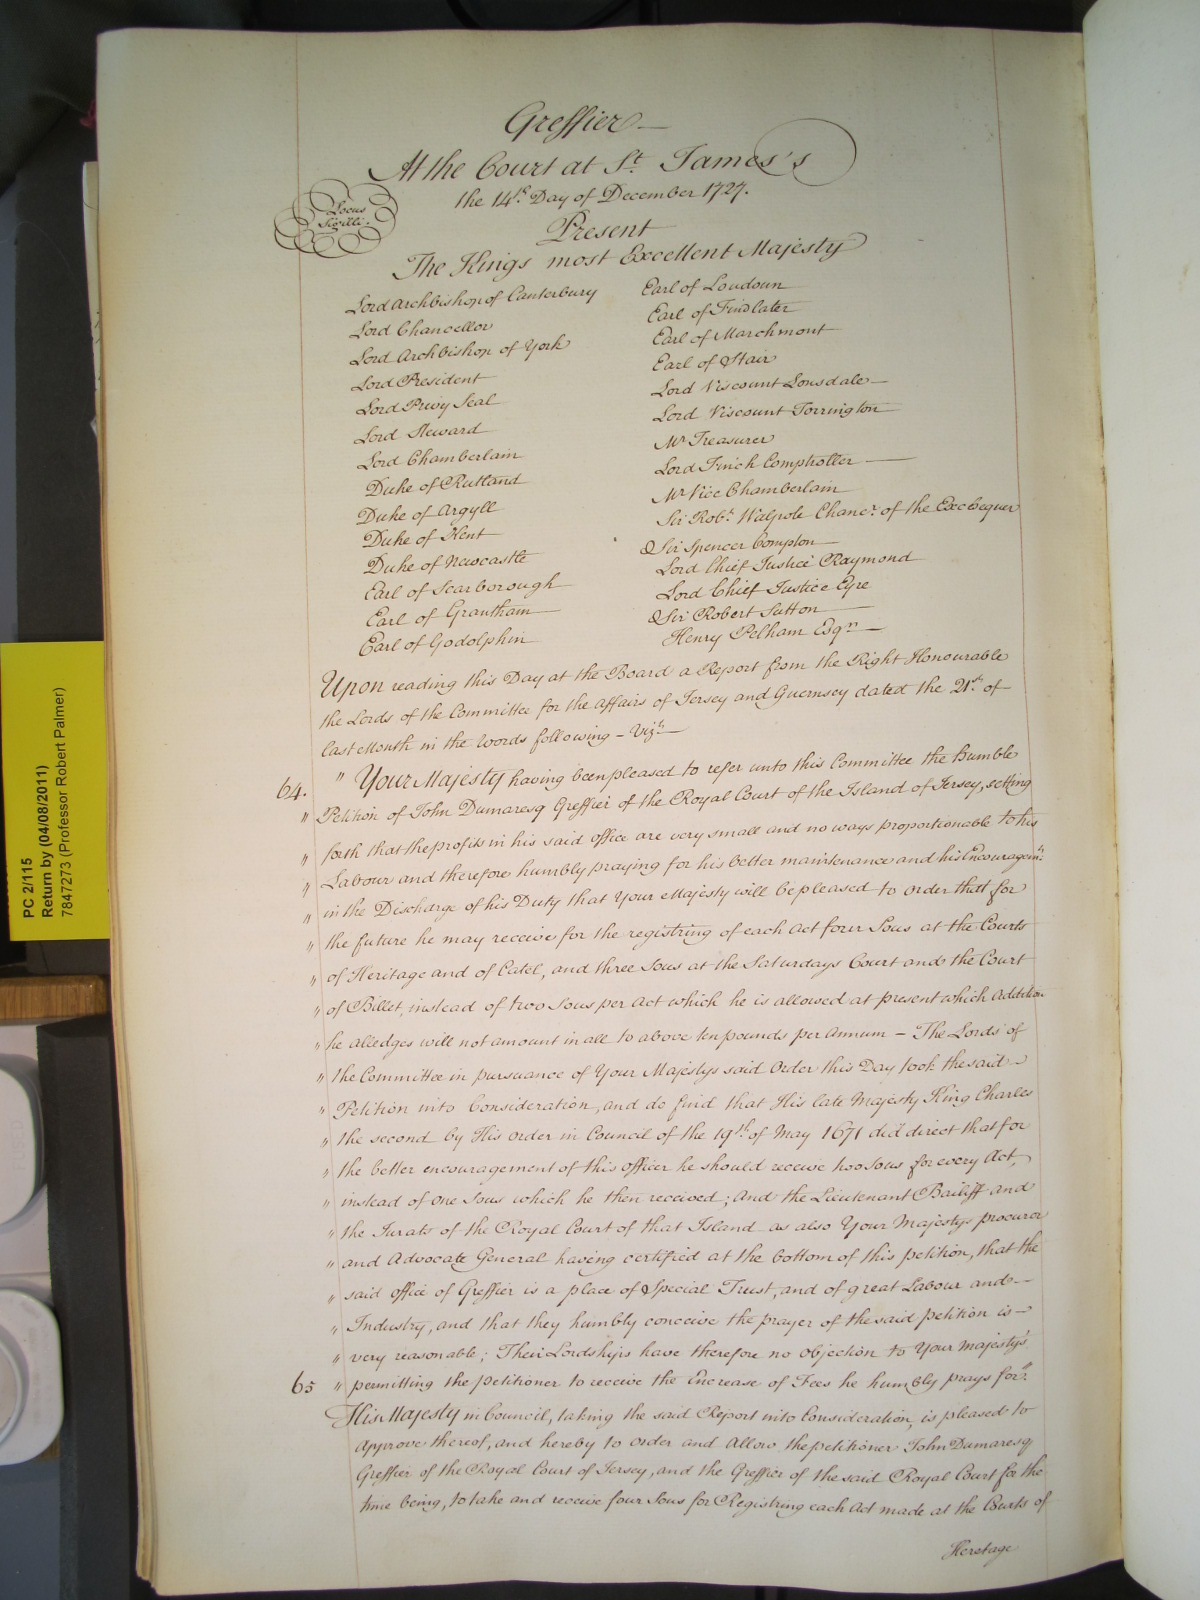 Greffier
At the Court at St. James's
the 14th. Day of December 1727.
Locus
Sigilli.
Present
The Kings most Excellent Majesty
Lord Archbishop of Canterbury
Lord Chancellor
Lord Archbishop of York
Lord President
Lord Privy Seal
Lord Steward
Lord Chamberlain
Duke of Rutland
Duke of Argyll
Duke of Kent
Duke of Newcastle
Earl of Scarborough
Earl of Grantham
Earl of Godolphin
Earl of Loudoun
Earl of Findlater
Earl of Marchmont
Earl of Stair
Lord Viscount Lonsdale
Lord Viscount Torrington
Mr Treasurer
Lord Finch Comptroller
Mr Vice Chamberlain
Sir Robt. Walpole Chancr. of the Exchequer
Sir Spencer Compton
Lord Chief Justice Raymond
Lord Chief Justice Eyre
Sir Robert Sutton
Henry Pelham Esqr.
Upon reading this Day at the Board a Report from the Right Honourable
the Lords of the Committee for the affairs of Jersey and Guernsey dated the 21st. of
last Month in the words following - Vizt.
64. " Your Majesty having been pleased to refer unto this Committee the humble
" Petition of John Dumaresq Greffier of the Royal Court of the Island of Jersey, setting
" forth that the profits in his said office are very small and no ways proportionable to his
" Labour and therefore humbly praying for his better maintenance and his Encouragemt.
" in the Discharge of his Duty that Your Majesty will be pleased to order that for
" the future he may receive for the registring of each Act four Sous at the Courts
" of Heritage and of Catel, and three Sous at the Saturdays Court and the Court
" of Billet, instead of two Sous per Act which he is allowed at present which Addition
" he alledges will not amount in all to above ten pounds per Annum - The Lords of
" the Committee in pursuance of Your Majestys said Order this Day took the said
" Petition into Consideration, and do find that His late Majesty King Charles
" the second by His order in Council of the 19th. of May 1671 did direct that for
" the better encouragement of this officer he should receive two Sous for every Act,
" instead of one Sous which he then received; And the Lieutenant Bailiff and
" the Jurats of the Royal Court of that Island as also Your Majestys procuror
" and Advocate General having certified at the bottom of this petition, that the
" said office of Greffier is a place of Special Trust, and of great Labour and
" Industry, and that they humbly conceive the prayer of the said petition is
" very reasonable; Their Lordships have therefore no objection to Your Majesty's
65 " permitting the petitioner to receive the Encrease of Fees he humbly prays for."
His Majesty in Council, taking the said Report into Consideration, is pleased to
approve thereof, and hereby to order and Allow the petitioner John Dumaresq
Greffier of the Royal Court of Jersey, and the Greffier of the said Royal Court for the
time being, to take and receive four Sous for Registring each Act made at the Courts of
Heretage
PC 2/115
Return by (04/08/2011)
7847273 (Professor Robert Palmer)